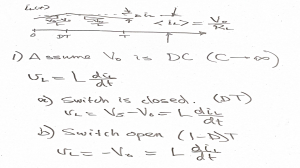 iL(t)
<iL> = Vo/RL
0 DT T
1) Assume Vo is DC (C→∞)
uL = L diL/dt
a) Switch is closed. (DT)
uL = Vs - Vo = L diL/dt
b) Switch open (1-D)T
uL = -Vo = L diL/dt